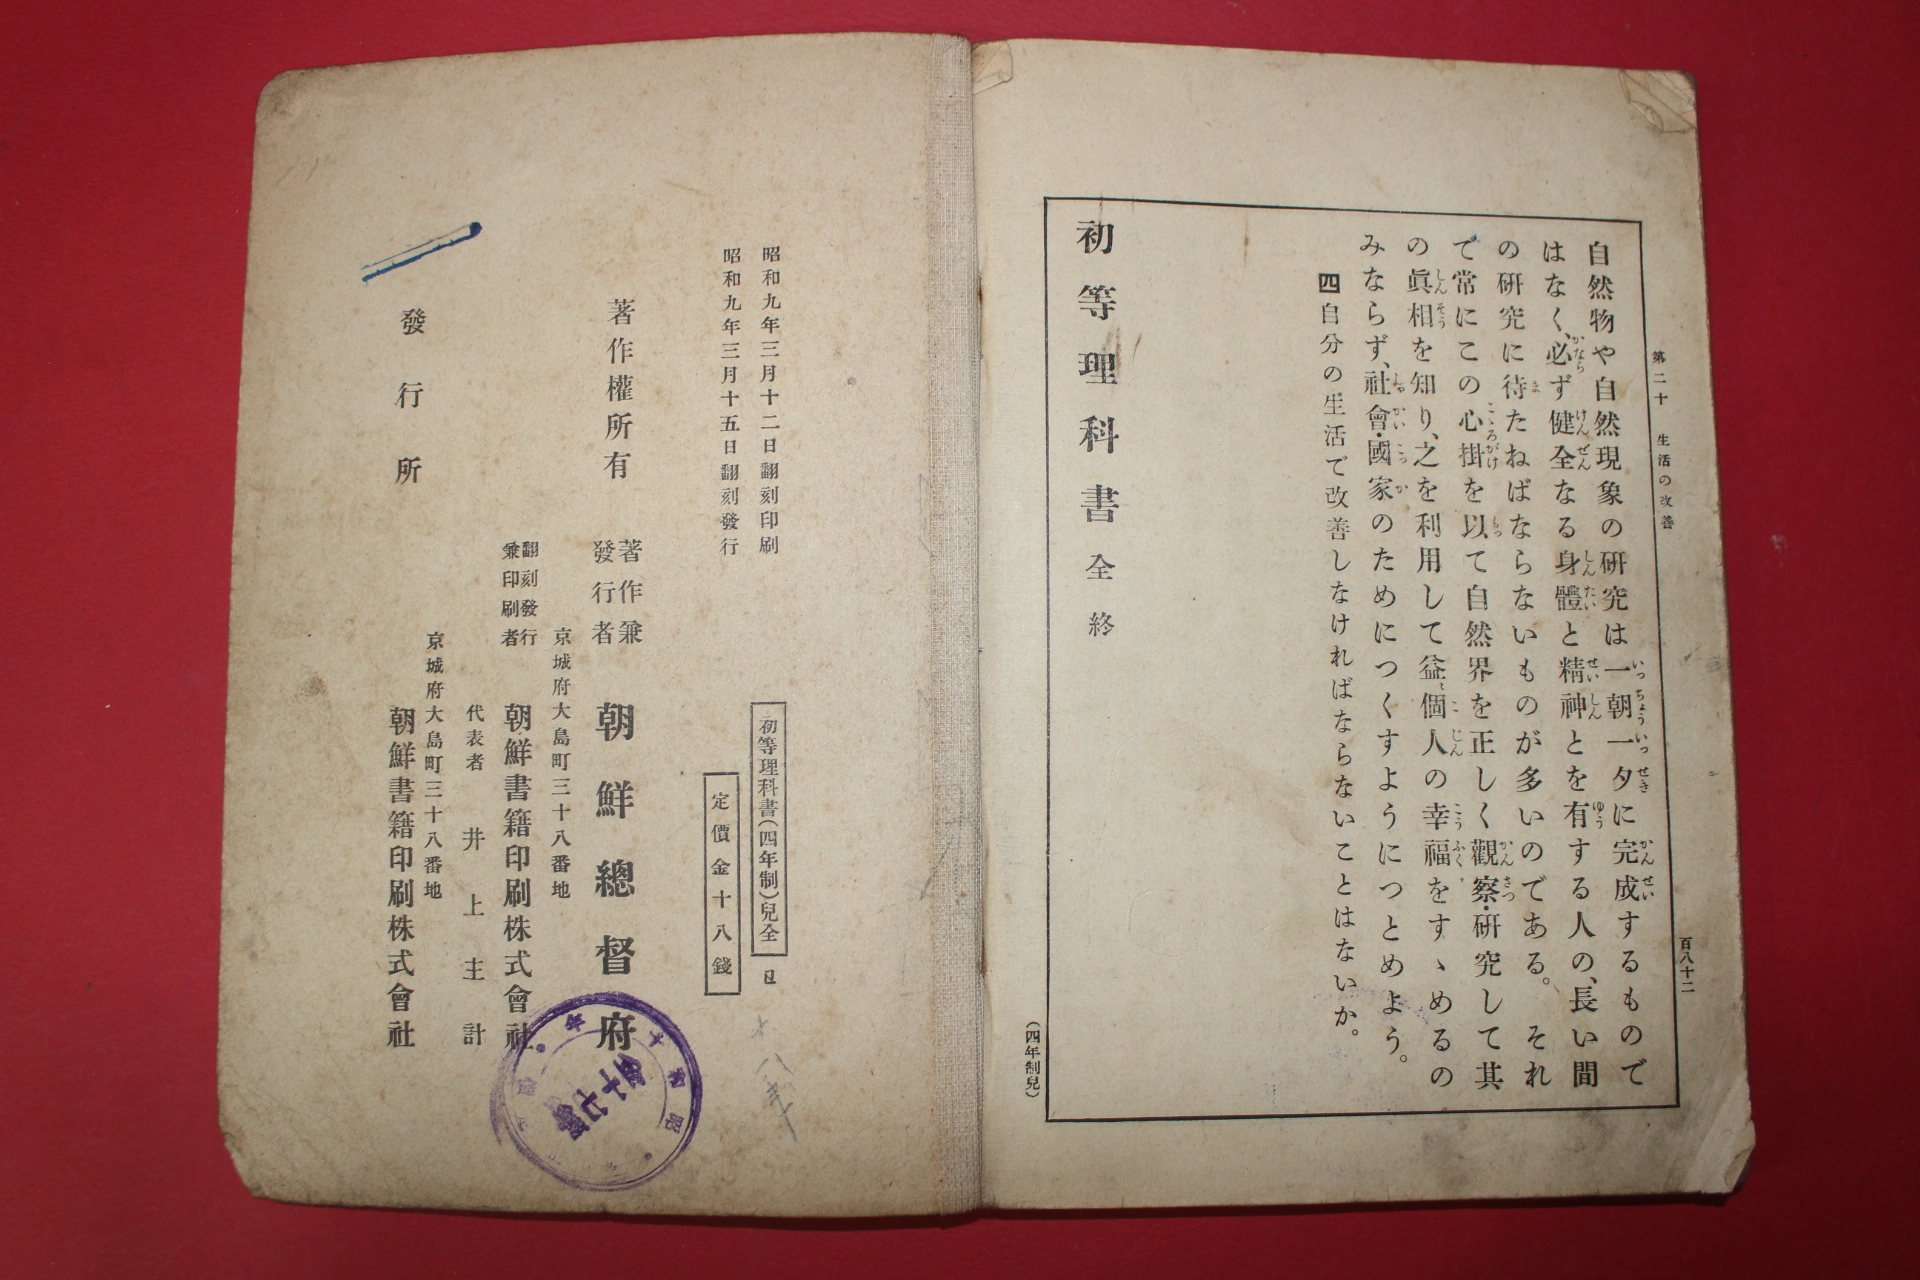 第二十 生活の改善
百八十二
自然物や自然現象の研究は一朝一夕に完成するもので
はなく、必ず健全なる身體と精神とを有する人の、長い間
の研究に待たねばならないものが多いのである。それ
で常にこの心掛を以て自然界を正しく觀察・研究して其
の眞相を知り、之を利用して益〻個人の幸福をすゝめるの
みならず、社會・國家のためにつくすようにつとめよう。
四 自分の生活で改善しなければならないことはないか。
初等理科書 全 終
(四年制兒)
昭和九年三月十二日翻刻印刷
昭和九年三月十五日翻刻發行
初等理科書(四年制)兒全
定價金十八錢
著作權所有
著作兼
發行者
朝鮮總督府
京城府大島町三十八番地
翻刻發行
兼印刷者
朝鮮書籍印刷株式會社
代表者 井上主計
京城府大島町三十八番地
發行所
朝鮮書籍印刷株式會社
昭和十年
金十七錢